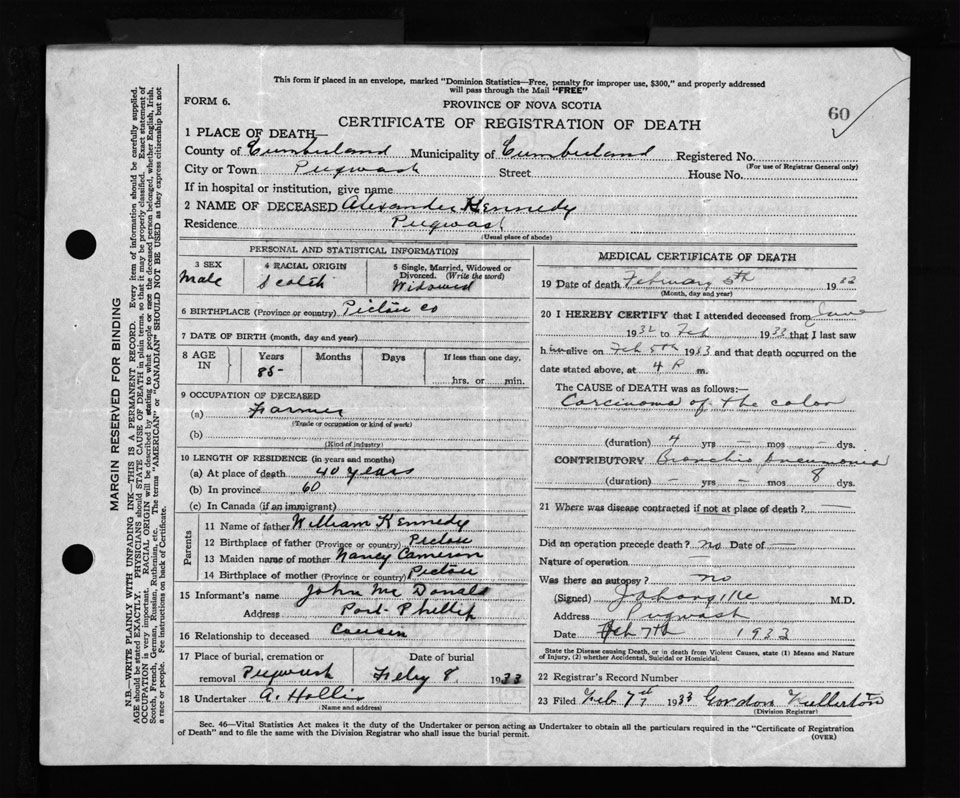 This form if placed in an envelope, marked "Dominion Statistics—Free, penalty for improper use, $300," and properly addressed
will pass through the Mail "FREE"
FORM 6.
PROVINCE OF NOVA SCOTIA
60
CERTIFICATE OF REGISTRATION OF DEATH
1 PLACE OF DEATH—
County of Cumberland Municipality of Cumberland Registered No.
(For use of Registrar General only)
City or Town Pugwash Street House No.
If in hospital or institution, give name
2 NAME OF DECEASED Alexander Kennedy
Residence Pugwash
(Usual place of abode)
PERSONAL AND STATISTICAL INFORMATION
3 SEX Male
4 RACIAL ORIGIN Scotch
5 Single, Married, Widowed or Divorced. (Write the word) Widowed
6 BIRTHPLACE (Province or country) Pictou Co
7 DATE OF BIRTH (month, day and year)
8 AGE IN Years Months Days If less than one day,
85- hrs. or min.
9 OCCUPATION OF DECEASED
(a) Farmer
(Trade or occupation or kind of work)
(b)
(Kind of industry)
10 LENGTH OF RESIDENCE (in years and months)
(a) At place of death 40 years
(b) In province 60
(c) In Canada (if an immigrant)
Parents
11 Name of father William Kennedy
12 Birthplace of father (Province or country) Pictou
13 Maiden name of mother Nancy Cameron
14 Birthplace of mother (Province or country) Pictou
15 Informant's name John McDonald
Address Port Phillip
16 Relationship to deceased Cousin
17 Place of burial, cremation or removal Pugwash
Date of burial Feby 8 1933
18 Undertaker A. Hollis
(Name and address)
MEDICAL CERTIFICATE OF DEATH
19 Date of death February 5th 1933
(Month, day and year)
20 I HEREBY CERTIFY that I attended deceased from June
1932 to Feb 1933 that I last saw
him alive on Feb 5th 1933 and that death occurred on the
date stated above, at 4 P m.
The CAUSE of DEATH was as follows:—
Carcinoma of the colon
(duration) 4 yrs — mos — dys.
CONTRIBUTORY Broncho Pneumonia
(duration) — yrs — mos 8 dys.
21 Where was disease contracted if not at place of death? —
Did an operation precede death? no Date of —
Nature of operation —
Was there an autopsy? no
(Signed) M.D.
Address Pugwash
Date Feb 7th 1933
State the Disease causing Death, or in death from Violent Causes, state (1) Means and Nature
of Injury, (2) whether Accidental, Suicidal or Homicidal.
22 Registrar's Record Number
23 Filed Feb 7th 1933 Gordon Fullerton
(Division Registrar)
Sec. 46—Vital Statistics Act makes it the duty of the Undertaker or person acting as Undertaker to obtain all the particulars required in the "Certificate of Registration
of Death" and to file the same with the Division Registrar who shall issue the burial permit.
(OVER)
MARGIN RESERVED FOR BINDING
N.B.—WRITE PLAINLY WITH UNFADING INK—THIS IS A PERMANENT RECORD. Every item of information should be carefully supplied.
AGE should be stated EXACTLY. PHYSICIANS should STATE CAUSE OF DEATH in plain terms, so that it may be properly classified. Exact statement of
OCCUPATION is very important. RACIAL ORIGIN will be described by stating to what people or race the deceased person belonged, whether English, Irish,
Scotch, French, German, Russian, Ruthenian, etc. The terms "AMERICAN" or "CANADIAN" SHOULD NOT BE USED as they express citizenship but not
a race or people. See instructions on back of Certificate.